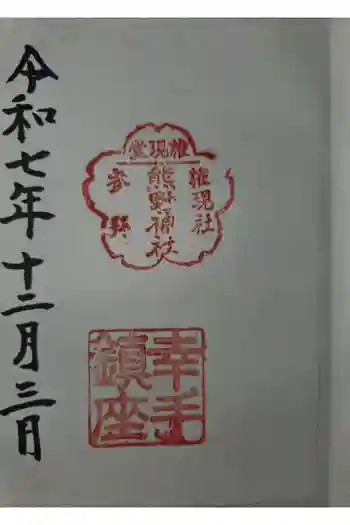 令和七年十二月三日
権現堂
権現社
熊野神社
幸手
鎮座